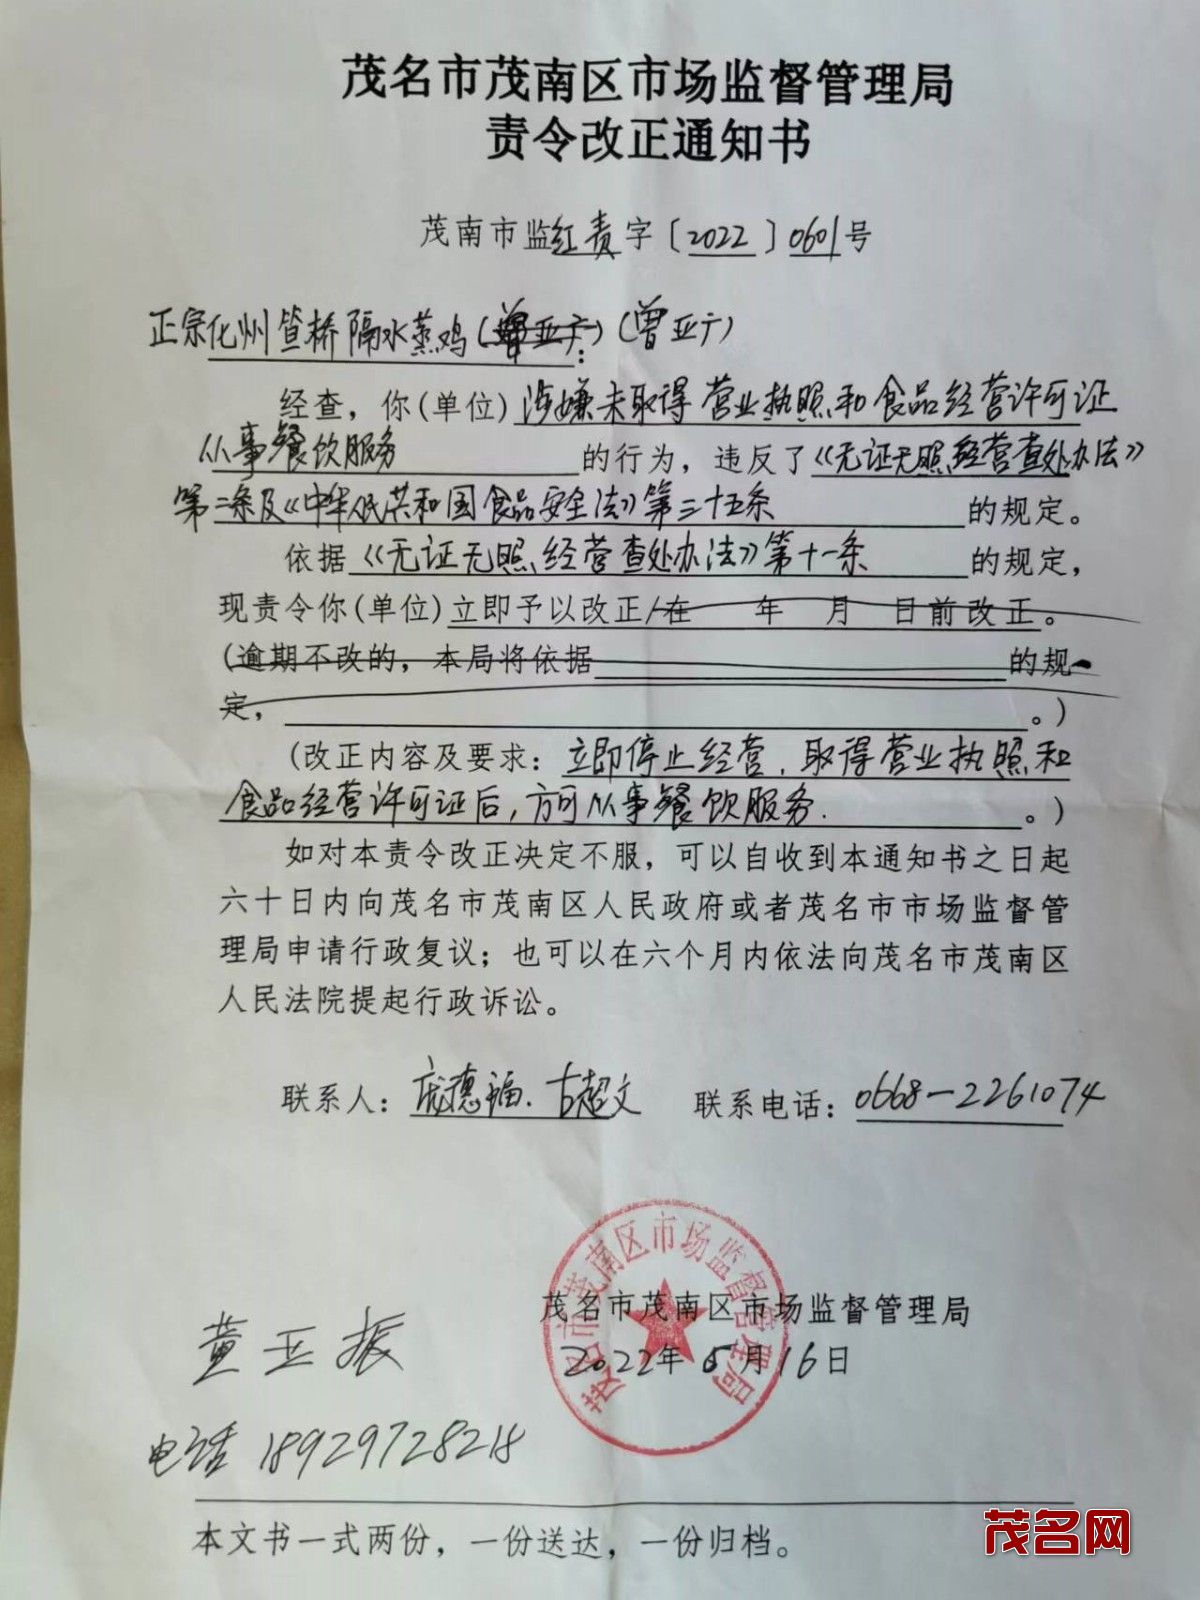 茂名市茂南区市场监督管理局
责令改正通知书
茂南市监红责字〔2022〕0601号
正宗化州笪桥隔水蒸鸡(曾亚广)(曾亚广):
经查，你(单位)涉嫌未取得营业执照和食品经营许可证
从事餐饮服务的行为，违反了《无证无照经营查处办法》
第二条及《中华人民共和国食品安全法》第三十五条的规定。
依据《无证无照经营查处办法》第十一条的规定，
现责令你(单位)立即予以改正/在 年 月 日前改正。
(逾期不改的，本局将依据 的规
定， 。)
(改正内容及要求：立即停止经营，取得营业执照和
食品经营许可证后，方可从事餐饮服务. 。)
如对本责令改正决定不服，可以自收到本通知书之日起
六十日内向茂名市茂南区人民政府或者茂名市市场监督管
理局申请行政复议；也可以在六个月内依法向茂名市茂南区
人民法院提起行政诉讼。
联系人：庞德福.古超文 联系电话：0668-2261074
茂名市茂南区市场监督管理局
茂名市茂南区市场监督管理局
2022年5月16日
黄亚振
电话 18929728218
本文书一式两份，一份送达，一份归档。
茂名网